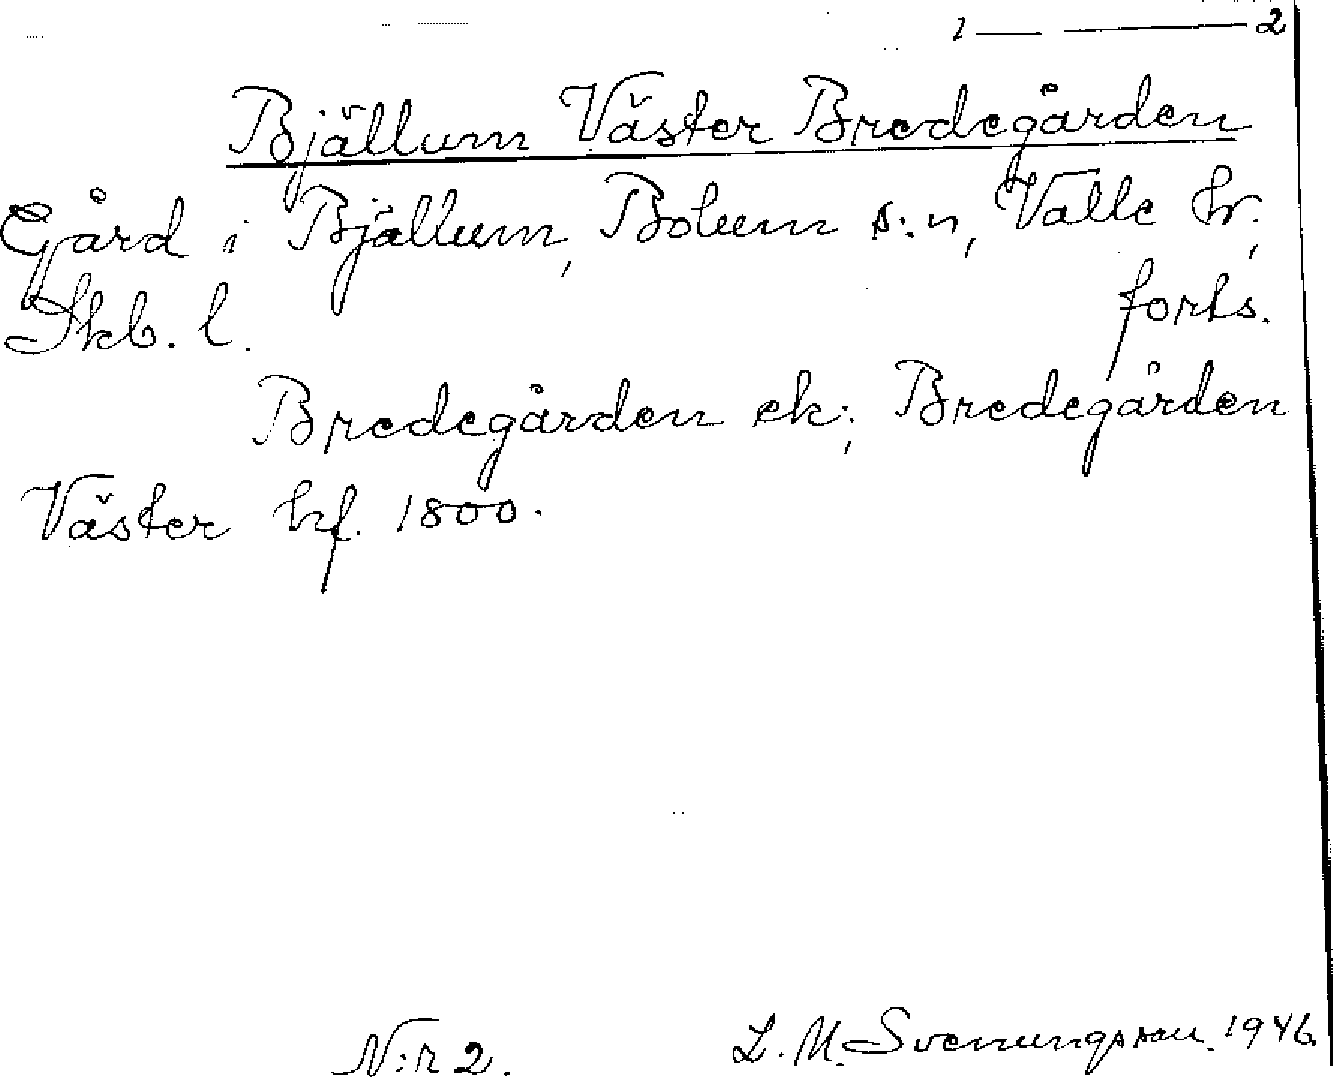 1 — — 2
Bjällum Väster Bredegården
Gård i Bjällum, Bolum s:n, Valle hr,
Skb. l. forts.
Bredegården ek; Bredegården
Väster kf. 1800.
N:r 2. L. M. Svenungsson. 1946.